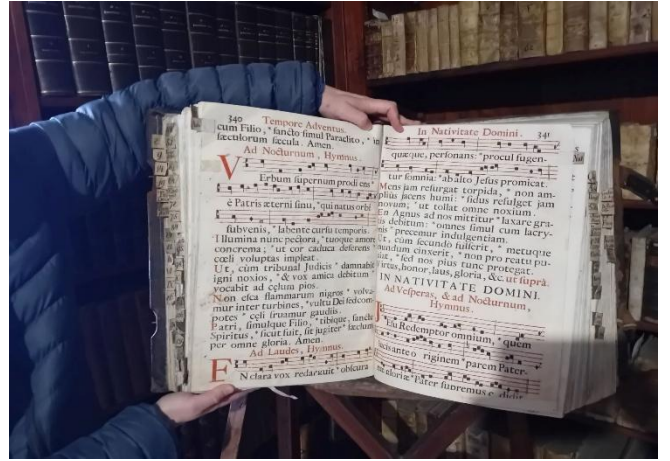 340 Tempore Adventus.
cum Filio, * sancto simul Paradito, * in
sæculorum sæcula. Amen.
Ad Nocturnum, Hymnus.
VErbum supernum prodiens *
è Patris æterni sinu, * qui natus orbi
subvenis, * labente cursu temporis.
Illumina nunc pectora, * tuoque amore
concrema; * ut cor caduca deferens
cœli voluptas impleat.
Ut, cùm tribunal Judicis * damnabit
igni noxios, * & vox amica debitum
vocabit ad cœlum pios.
Non esca flammarum nigros * volva-
mur inter turbines, * vultu Dei sed com-
potes * cœli fruamur gaudiis.
Patri, simulque Filio, * tibique, sancte
Spiritus, * sicut fuit, sit jugiter * sæclum
per omne gloria. Amen.
Ad Laudes, Hymnus.
EN clara vox redarguit * obscura
In Nativitate Domini. 341
quæque, personans: * procul fugen-
tur somnia: * ab alto Jesus promicat.
Mens jam resurgat torpida, * non am-
plius jacens humi: * sidus refulget jam
novum; * ut tollat omne noxium.
En Agnus ad nos mittitur * laxare gra-
tis debitum: * omnes simul cum lacry-
mis * precemur indulgentiam.
Ut, cùm secundò fulserit, * metuque
mundum cinxerit, * non pro reatu pu-
niat, * sed nos pius tunc protegat.
Virtus, honor, laus, gloria, &c. ut suprà.
IN NATIVITATE DOMINI.
Ad Vesperas, & ad Nocturnum,
Hymnus.
JEsu Redemptor omnium, * quem
lucis ante originem * parem Pater-
næ gloriæ * Pater supremus edidit